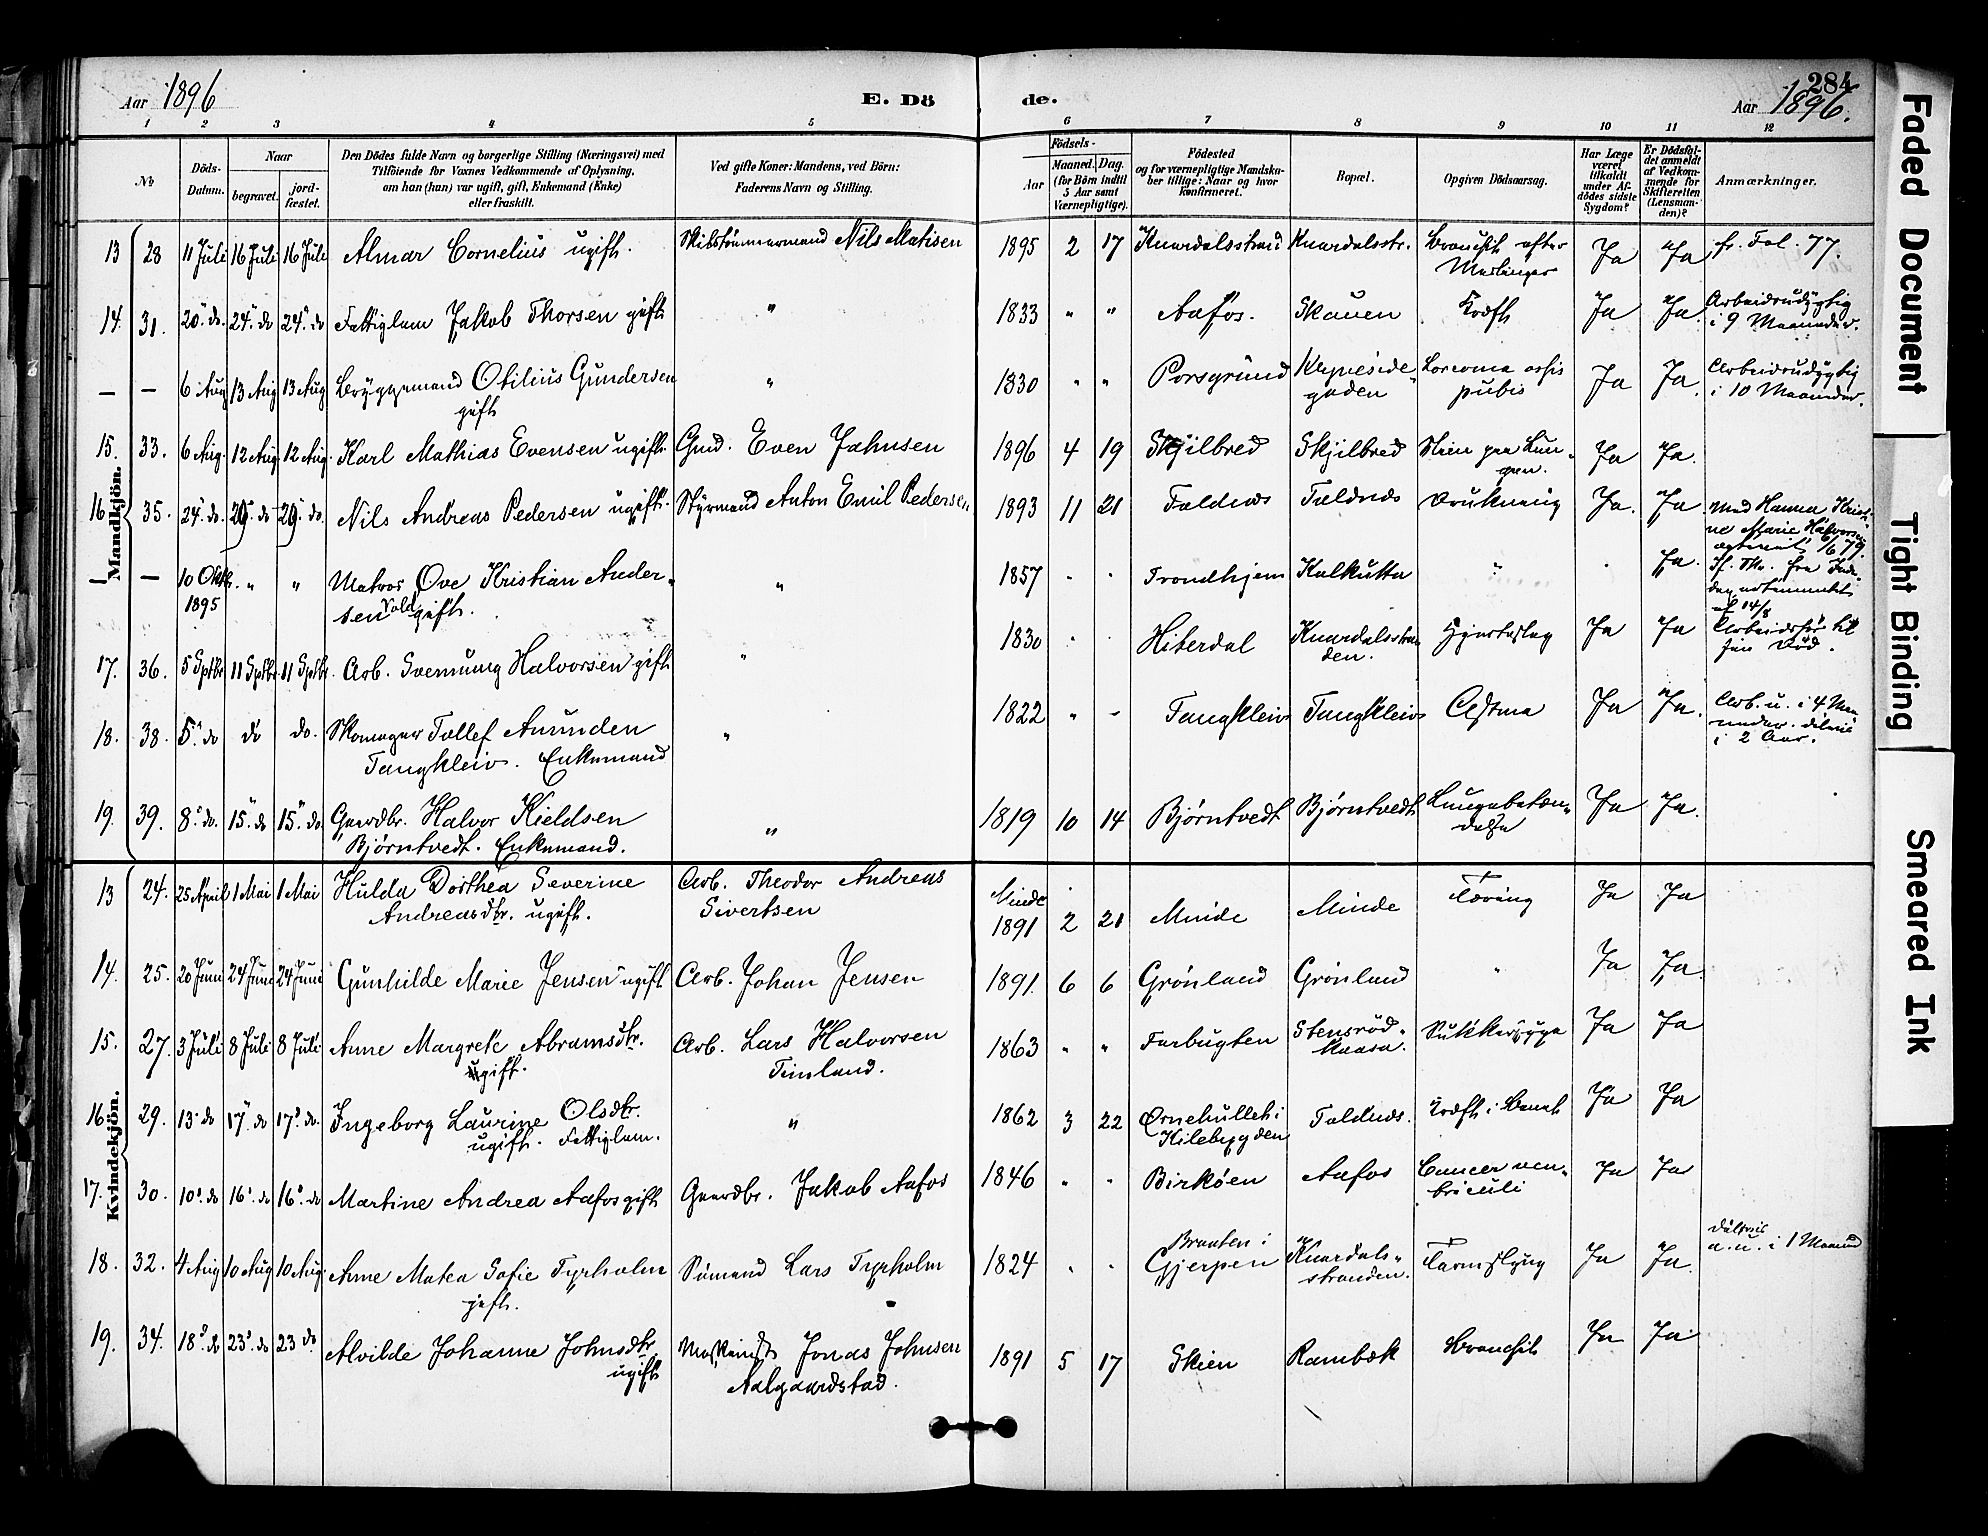 Aar 1896
E. Dö
de.
284
Aar 1896.
1 2 3 4 5 6 7 8 9 10 11 12
No
Döds-
Datum.
Naar
begravet.
jord-
fæstet.
Den Dödes fulde Navn og borgerlige Stilling (Næringsvei) med
Tilföiende for Voxnes Vedkommende af Oplysning,
om han (hun) var ugift, gift, Enkemand (Enke)
eller fraskilt.
Ved gifte Koner: Mandens, ved Börn:
Faderens Navn og Stilling.
Födsels-
Aar
Maaned.
Dag.
(for Börn indtil
5 Aar samt
Værnepligtige).
Födested
og for værnepligtige Mandska-
ber tillige: Naar og hvor
konfirmeret.
Bopæl.
Opgiven Dödsaarsag.
Har Læge
været
tilkaldt
under Af-
dödes sidste
Sygdom?
Er Dödsfal-
det anmeldt
af Vedkom-
mende for
Skifteretten
(Lensman-
den)?
Anmærkninger.
Mandkjön.
13 28 11 Juli 16 Juli 16 Juli Almar Cornelius ugift. Skibstømmermand Nils Matisen 1895 2 17 Knardalsstrand Knardalsstr. Bronchit efter
Meslinger Ja Ja fr. Fol. 77.
14. 31. 20. do. 24. do 24. do Fattiglem Jakob Thorsen gift " 1833 " " Aafos. Skauen Kræft Ja Ja. Arbeidsudygtig
i 9 Maaneder.
— — 6 Aug 13 Aug 13 Aug Bryggemand Otilius Gundersen
gift " 1830 " " Porsgrund
gaden
pubis Ja Ja. Arbeidsudygtig
i 10 Maaneder.
15. 33. 6 Aug. 12 Aug 12 Aug. Karl Mathias Evensen ugift. Gmd. Even Jahnsen 1896 4 19 Skjilbred Skjilbred Ja Ja.
16 35. 24. do. 29. do 29. do. Nils Andreas Pedersen ugift. Styrmand Anton Emil Pedersen 1893 11 21 Foldnæs Foldnæs Drukning Ja. Ja
— — 10 Oktbr.
1895 " " Matros Ove Kristian Ander-
sen Vold gift. " 1857 " " Trondhjem Kalkutta " Ja.
med Hanna Kristi-
ne Marie Halvorsen
17. 36. 5 Sptbr 11 Sptbr 11 Sptbr. Arb. Svennung Halvorsen gift " 1830 Hiterdal Knardalsstran
den. Hjerteslag Ja Ja Arbeidsfør til
sin Død.
18. 38. 5. do do do. Skomager Tollef Aanunden
Tangkleiv. Enkemand " 1822 " - Tangkleiv Tangkleiv Astma Ja Ja. Arb. u. i 4 Maa
neder.
i 2 Aar.
19. 39. 8. do. 15. do 15. do Gaardbr. Halvor Kieldsen
Bjørntvedt. Enkemand. " 1819 10 14 Bjørntvedt Bjørntvedt Lungebetæn-
delse Ja Ja.
Kvindekjön.
13 24. 25 April 1 Mai 1 Mai Hulda Dorthea Severine
Andreasdtr. ugift. Arb. Theodor Andreas
Sivertsen Minde
1891 2 21 Minde Minde Tæring Ja Ja
14. 25. 20 Juni 24 Juni 24 Juni Gunhilde Marie Jensen ugift Arb. Johan Jensen 1891. 6 6 Grönland Grönland " Ja Ja.
15. 27. 3 Juli 8 Juli 8 Juli Anne Margrete Abramsdtr.
gift. Arb. Lars Halvorsen
Timland. 1863 " " Farbugten Stensrød-
Sukkersyge Ja Ja
16 29. 13 do 17. do 17. do. Ingeborg Laurine Olsdtr.
ugift. Fattiglem. " 1862 3 22 Ørnehullet i
Kilebygden Foldnæs. Kræft i Ja Ja
17. 30. 10. do 16. do 16. do Martine Andrea Aafos gift Gaardbr. Jakob Aafos 1846 " " Birkøen Aafos Cancer ven-
triculi Ja Ja
18. 32. 4 Aug 10 Aug 10 Aug. Anne Matea Sofie Tyrholm
gift. Sømand Lars Tyrholm 1824 " " Braaten i
Gjerpen Knardals-
stranden. Tarmslyng Ja Ja.
a. u. i 1 Maaned
19. 34. 18. do 23. do 23 do Alvilde Johanne Johnsdtr
ugift Maskinist Jonas Johnsen
Aalgaardstad. 1891 5 17 Skien Rambæk Bronchit Ja Ja
Faded Document
Tight Binding
Smeared Ink